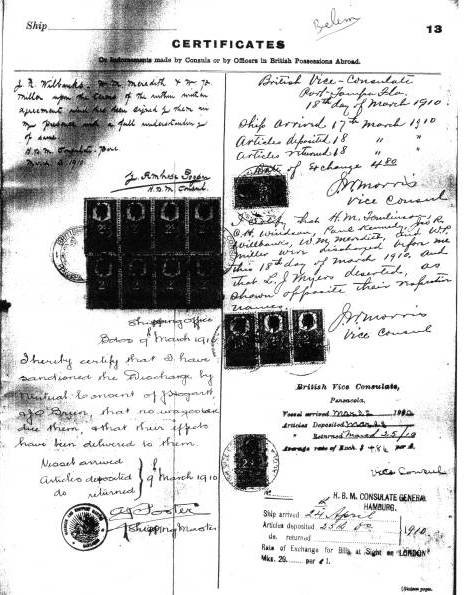 Ship
Belem
13
CERTIFICATES
Or Endorsements made by Consuls or by Officers in British Possessions Abroad.
J. R. Wilbanks W. M. Meredith & W. P.
Miller upon the terms of the within written
agreement which has been signed by them in
my presence with a full understanding
of same
H.B.M. Consulate, Para
1910
H.B.M. Consul
Shipping Office
March 1910
I hereby certify that I have
sanctioned the Discharge by
mutual consent of J Hogarth
J C Green, that no wages are
due them, & that their effects
have been delivered to them.
Vessel arrived
Articles deposited 9 March 1910
do returned
A J Porter
Shipping Master
British Vice-Consulate
Port Tampa Fla.
18th day of March 1910.
Ship arrived 17th March 1910
Articles deposited 18 " "
Articles returned 18 " "
Rate of Exchange 4.80
JW Morris
Vice Consul
I certify that H. M. Tomlinson,
C. H. Windean, Paul Kennedy, Jno R.
Willbanks, W. M. Meredith, and W. P.
Miller were discharged before me
this 18th day of March 1910. and
that L. J. Myers deserted, as
shown opposite their respective
names.
JW Morris
Vice Consul
British Vice Consulate,
Pensacola,
Vessel arrived March 22 1910
Articles Deposited March
" Returned March 25/10
Average rate of Exch. $4.86 per £.
Vice Consul
H. B. M. CONSULATE GENERAL
HAMBURG.
Ship arrived 24 April
Articles deposited 25th Do 1910.
do. returned
Rate of Exchange for Bills at Sight on "LONDON"
Mks. 20. per £1.